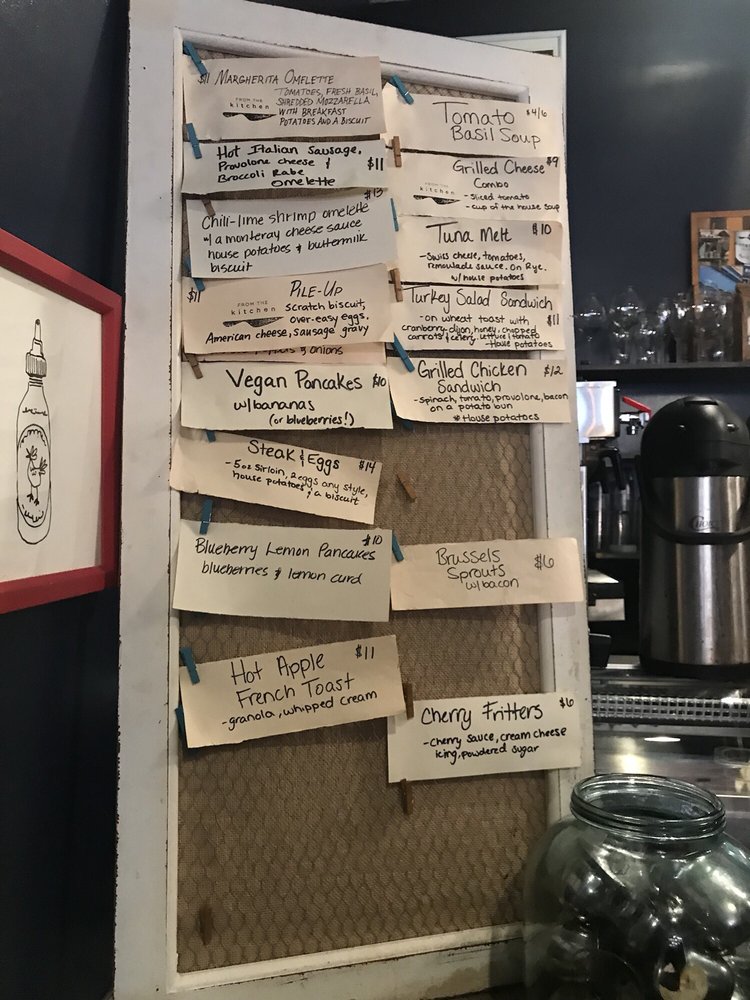 $11 MARGHERITA OMELETTE
TOMATOES, FRESH BASIL,
SHREDDED MOZZARELLA
WITH BREAKFAST
POTATOES AND A BISCUIT
FROM THE
kitchen
Hot Italian Sausage,
Provolone cheese & $11
Broccoli Rabe
Omelette
$13
Chili-lime shrimp omelette
w/ a monteray cheese sauce
house potatoes & buttermilk
biscuit
$11 PILE-UP
FROM THE
kitchen
scratch biscuit,
over-easy eggs,
American cheese, sausage gravy
& onions
Vegan Pancakes $10
w/bananas
(or blueberries!)
Steak & Eggs $14
-5oz sirloin, 2 eggs any style,
house potatoes, & a biscuit
$10
Blueberry Lemon Pancakes
blueberries & lemon curd
Hot Apple $11
French Toast
-granola, whipped cream
Tomato $4/6
Basil Soup
Grilled Cheese $9
Combo
FROM THE
kitchen
-sliced tomato
-cup of the house soup
Tuna Melt $10
-Swiss cheese, tomatoes,
remoulade sauce. on Rye.
w/ house potatoes
Turkey Salad Sandwich
-on wheat toast with $11
cranberry dijon, honey, chopped
carrots & celery, lettuce & tomato
-House potatoes
Grilled Chicken $12
Sandwich
-spinach, tomato, provolone, bacon
on a potato bun
* House potatoes
Brussels $6
Sprouts
w/bacon
Cherry Fritters $6
-cherry sauce, cream cheese
icing, powdered sugar